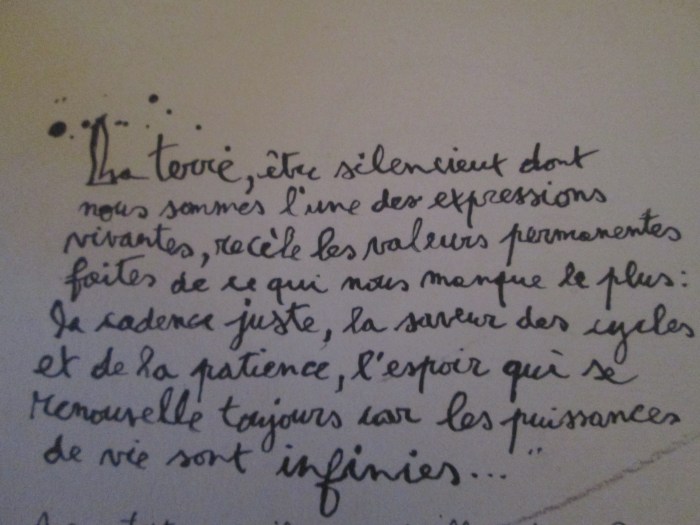 La terre, être silencieux dont
nous sommes l'une des expressions
vivantes, recèle les valeurs permanentes
faites de ce qui nous manque le plus:
la cadence juste, la saveur des cycles
et de la patience, l'espoir qui se
renouvelle toujours car les puissances
de vie sont infinies... "